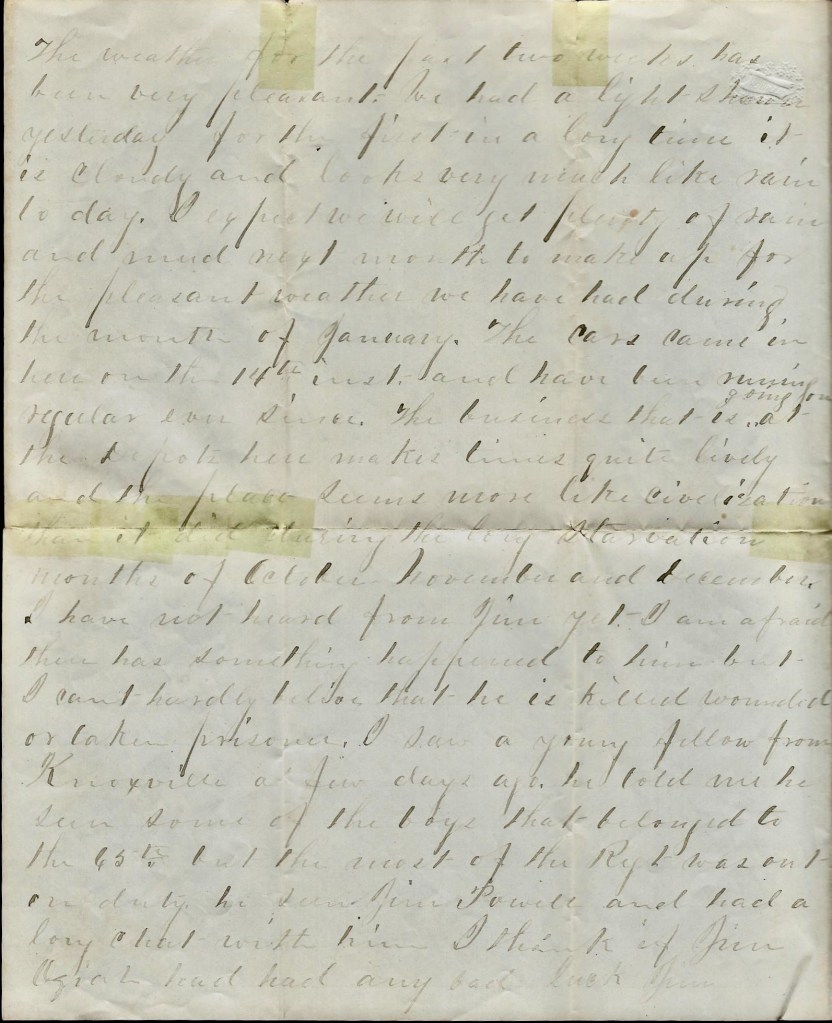 The weather for the past two weeks has
been very pleasant. We had a light shower
yesterday for the first in a long time it
is cloudy and looks very much like rain
to day. I expect we will get plenty of rain
and mud next month to make up for
the pleasant weather we have had during
the month of January. The cars came in
here on the 14th inst. and have been runing
regular ever since. The business that is going on at
the depot here makes times quite lively
and the place seems more like civilization
than it did during the long starvation
months of October November and December.
I have not heard from Jim yet. I am afraid
there has something happened to him but
I cant hardly belive that he is killed wounded
or taken prisoner. I saw a young fellow from
Knoxville a few days ago. he told me he
seen some of the boys that belonged to
the 65th but the most of the Regt was out
on duty he seen Jim Powell and had a
long chat with him I think if Jim
had had any bad luck Jim